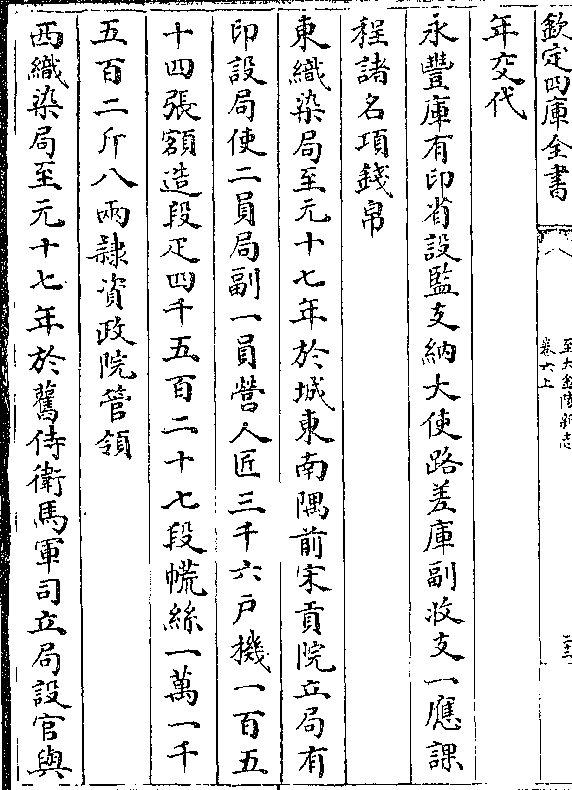 欽定四庫全書
至大金陵新志
卷六上
年交代
永豐庫有印省設監支納大使路差庫副收支一應課
程諸名項錢帛
東織染局至元十七年於城東南隅前宋貢院立局有
印設局使二員局副一員管人匠三千六戶機一百五
十四張額造段疋四千五百二十七段㡆絲一萬一千
五百二斤八兩隷資政院管領
西織染局至元十七年於舊侍衛馬軍司立局設官與